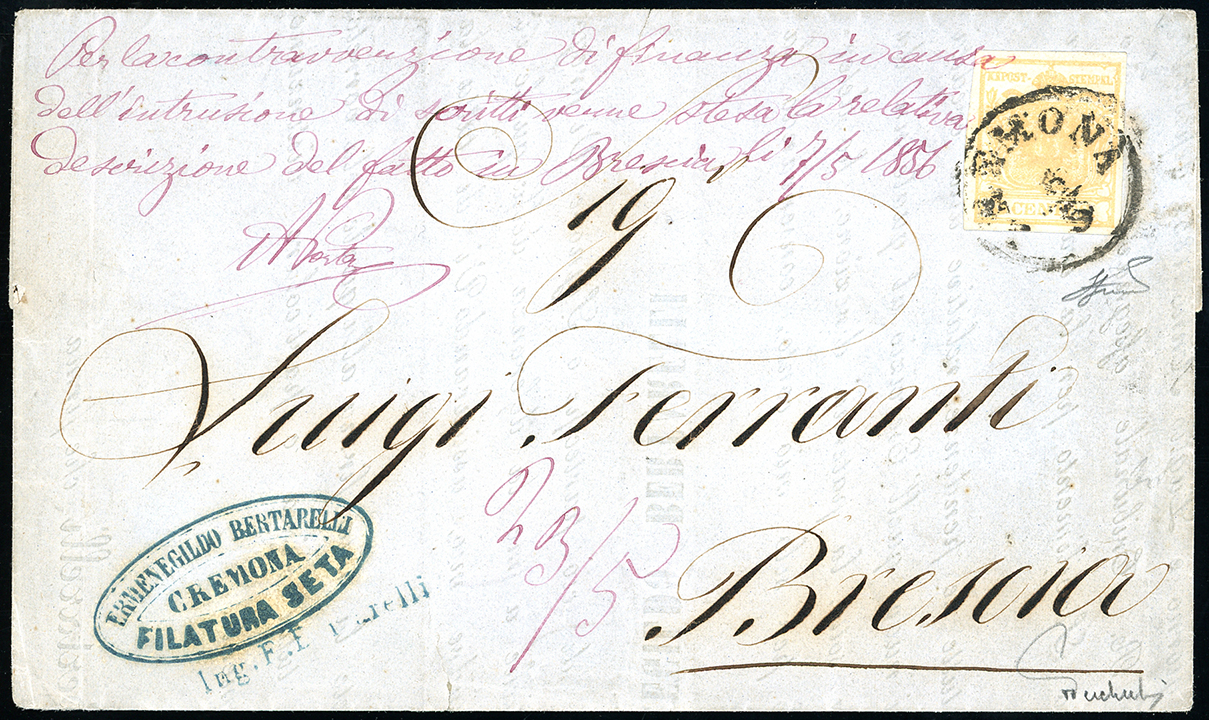 Per la contravvenzione di finanza in causa
dell'intrusione di scritti venne stesa la relativa
descrizione del fatto in Brescia li 7/5 1856
KPOST- STEMPEL
CREMONA
CENTES
Sig.
Luigi Ferranti
23/5
Brescia
ERMENEGILDO BERTARELLI
CREMONA
FILATURA SETA
Ing. F. F.